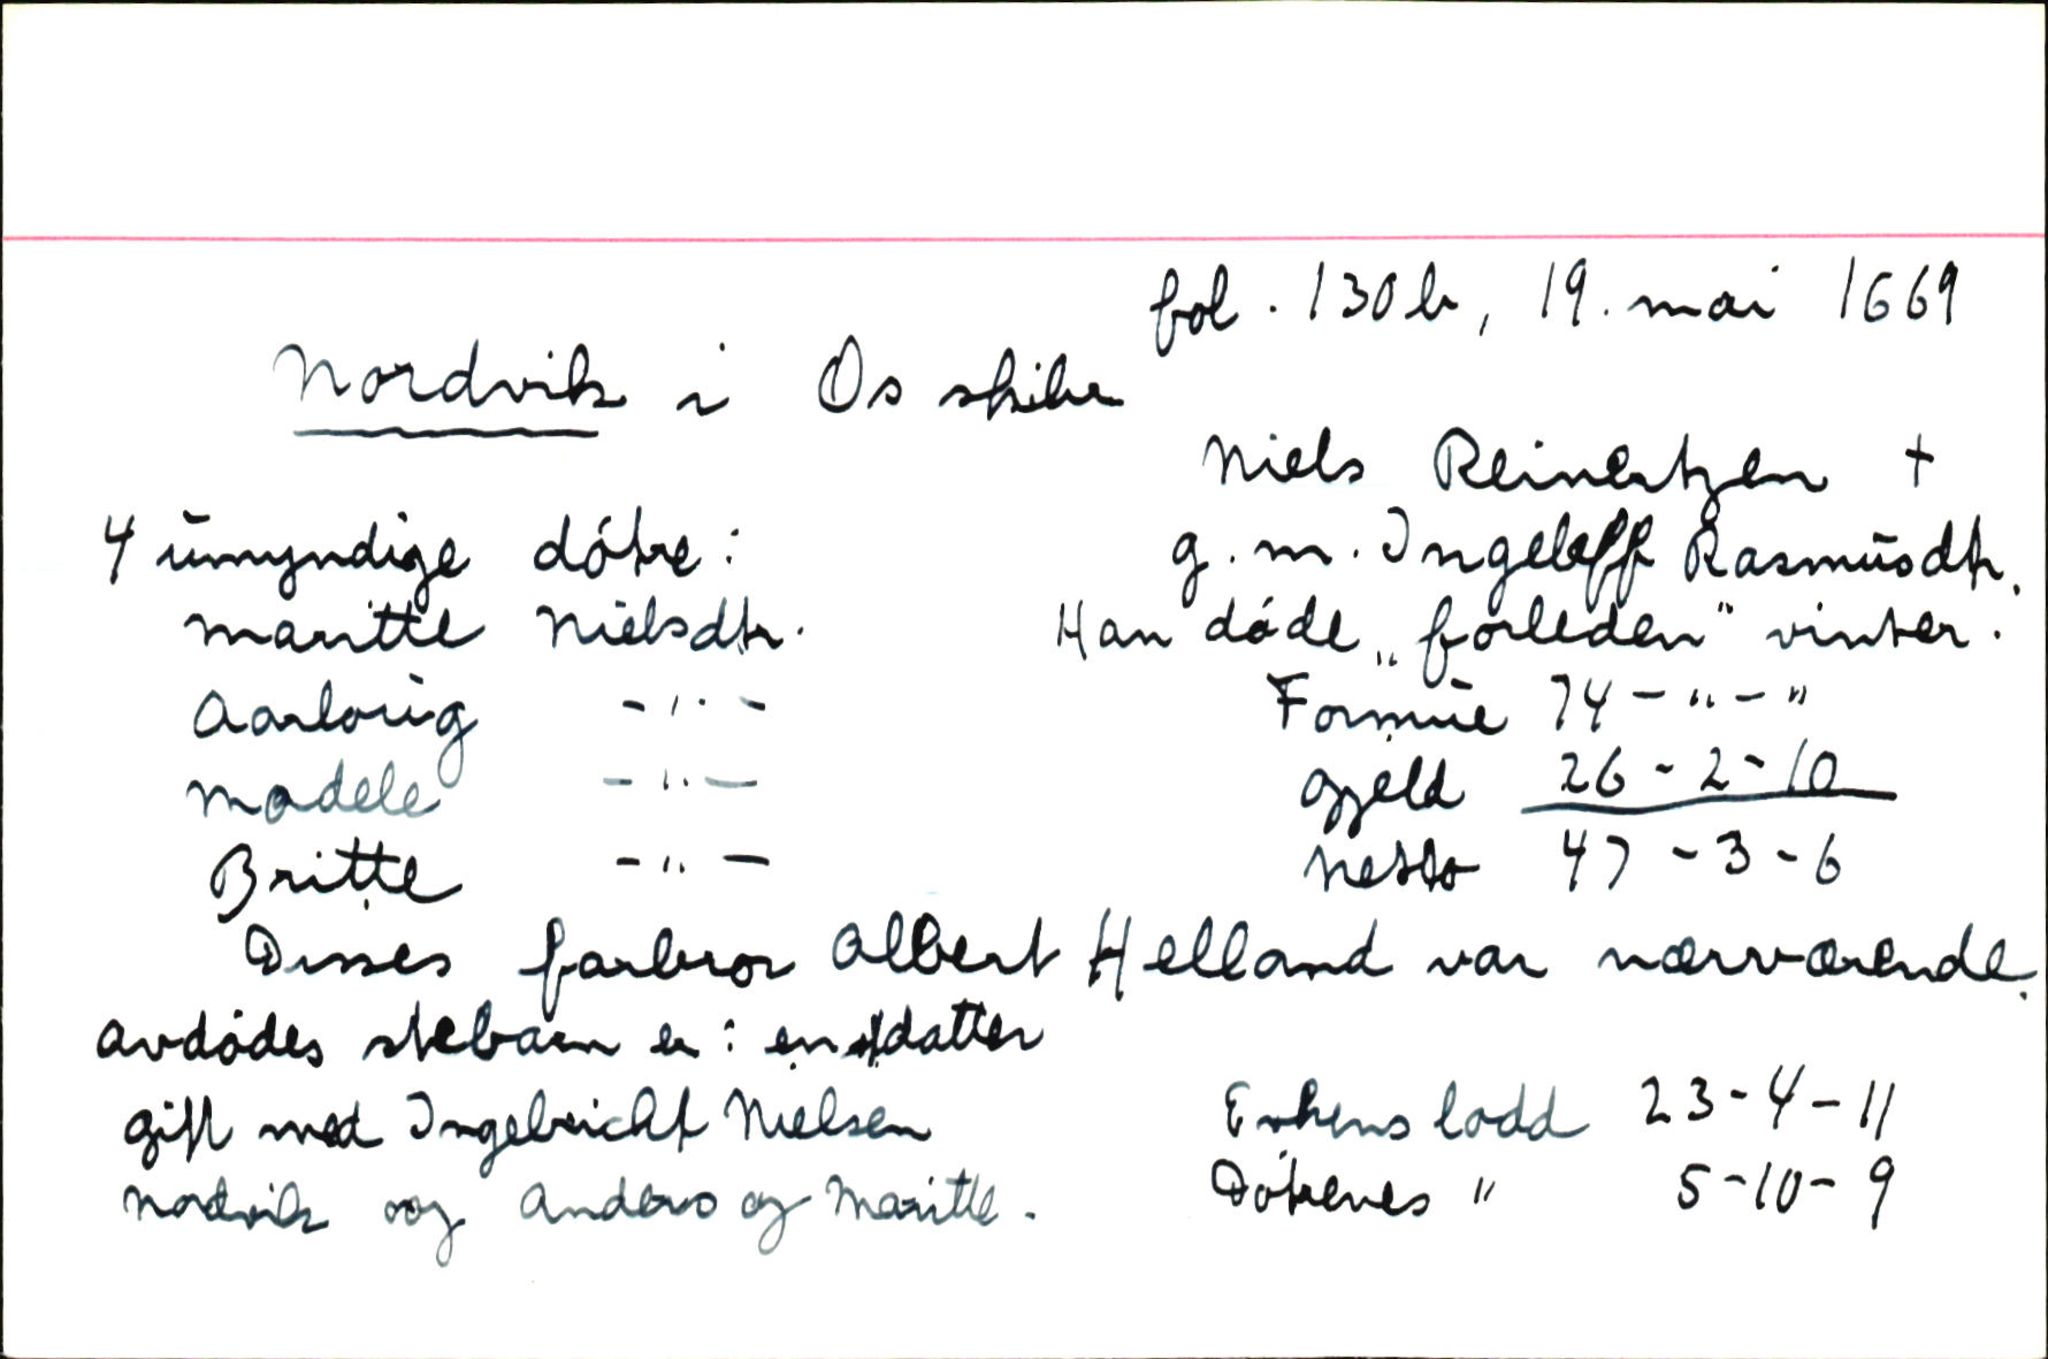 fol. 130b, 19. mai 1669
Nordvik i Os skibr.
Niels Reinertzen +
4 umyndige døtre:
g. m. Ingeleff Rasmusdtr.
Maritte Nielsdtr.
Han døde „forleden" vinter.
Aarlaug - " -
Formue 74 - " - "
Madele - " -
Gjeld 26 - 2 - 10
Britte - " -
Netto 47 - 3 - 6
Disses farbror Albert Helland var nærværende.
Avdødes stebarn er: en datter
gift med Ingebricht Nielsen
Enkens lodd 23 - 4 - 11
Nordvik og Anders og Maritte.
Døtrenes " 5 - 10 - 9